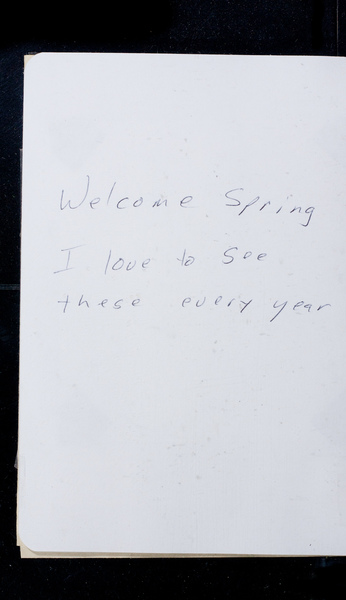 Welcome Spring
I love to see
these every year